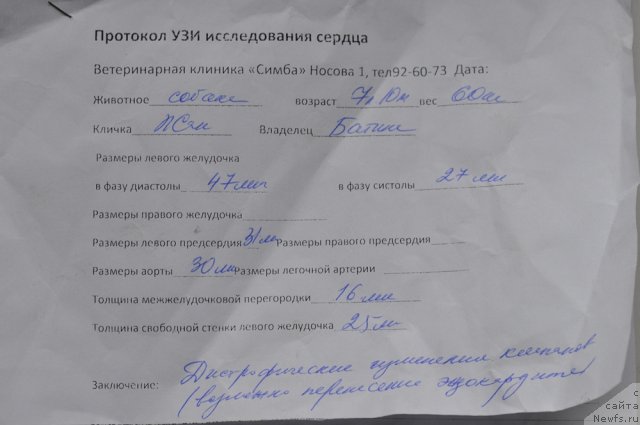 Протокол УЗИ исследования сердца
Ветеринарная клиника «Симба» Носова 1, тел92-60-73 Дата:
Животное собака возраст 7л 10м вес 60кг
Кличка Владелец
Размеры левого желудочка
в фазу диастолы 47мм в фазу систолы 27мм
Размеры правого желудочка
Размеры левого предсердия 31мм Размеры правого предсердия
Размеры аорты 30мм Размеры легочной артерии
Толщина межжелудочковой перегородки 16мм
Толщина свободной стенки левого желудочка 25мм
Дистрофические изменения клапанов
Заключение: (возможно перенесение эндокардита)
с сайта
Newfs.ru